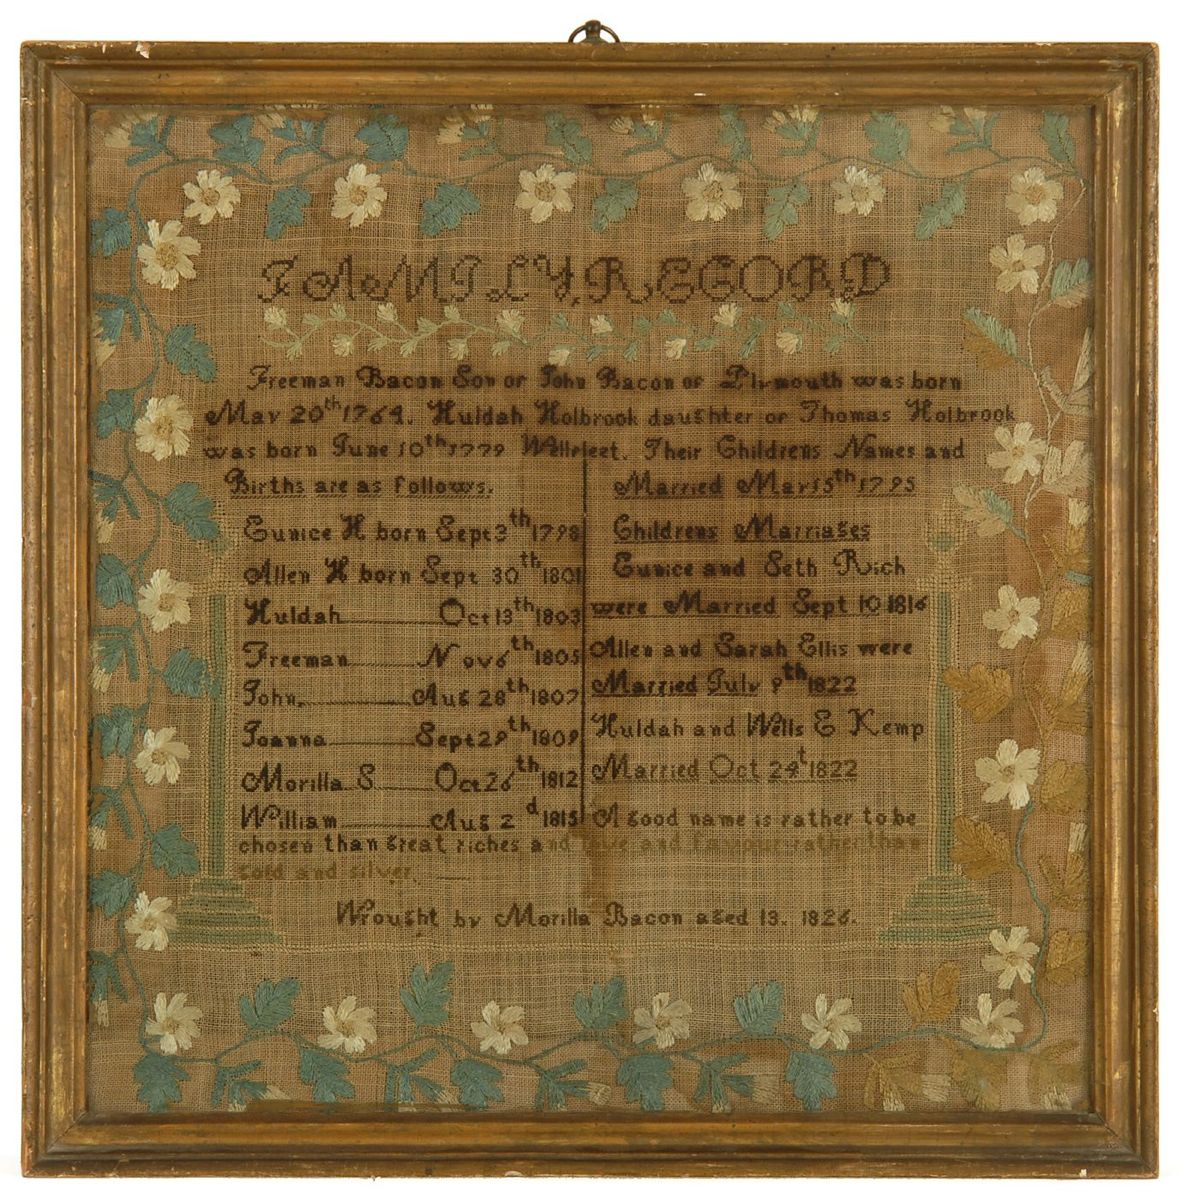 FAMILY RECORD
Freeman Bacon Son of John Bacon of Plymouth was born
May 20th 1764. Huldah Holbrook daughter of Thomas Holbrook
was born June 10th 1779 Wellfleet. Their Childrens Names and
Births are as follows.
Eunice H born Sept 3th 1798
Allen H born Sept 30th 1801
Huldah Oct 13th 1803
Freeman Nov 6th 1805
John Aug 28th 1807
Joanna Sept 29th 1809
Morilla S Oct 26th 1812
William Aug 2d 1815
Married May 15th 1795
Childrens Marriages
Eunice and Seth Rich
were Married Sept 10 1816
Allen and Sarah Ellis were
Married July 9th 1822
Huldah and Wells E Kemp
Married Oct 24t 1822
A good name is rather to be
chosen than great riches and love and favour rather than
gold and silver
Wrought by Morilla Bacon aged 13. 1826.